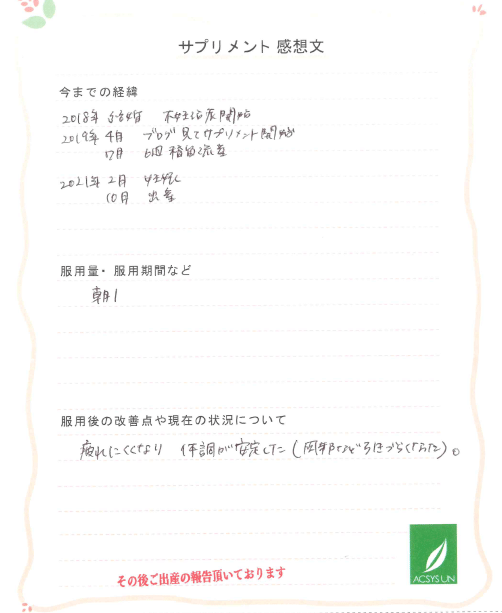 サプリメント 感想文
今までの経緯
2018年 結婚 不妊治療開始
2019年 4月 ブログ見てサプリメント開始
7月 6週 稽留流産
2021年 2月 妊娠
10月 出産
服用量・服用期間など
朝1
服用後の改善点や現在の状況について
疲れにくくなり 体調が安定した(風邪などもひきづらくなった)。
その後ご出産の報告頂いております
ACSYSUN